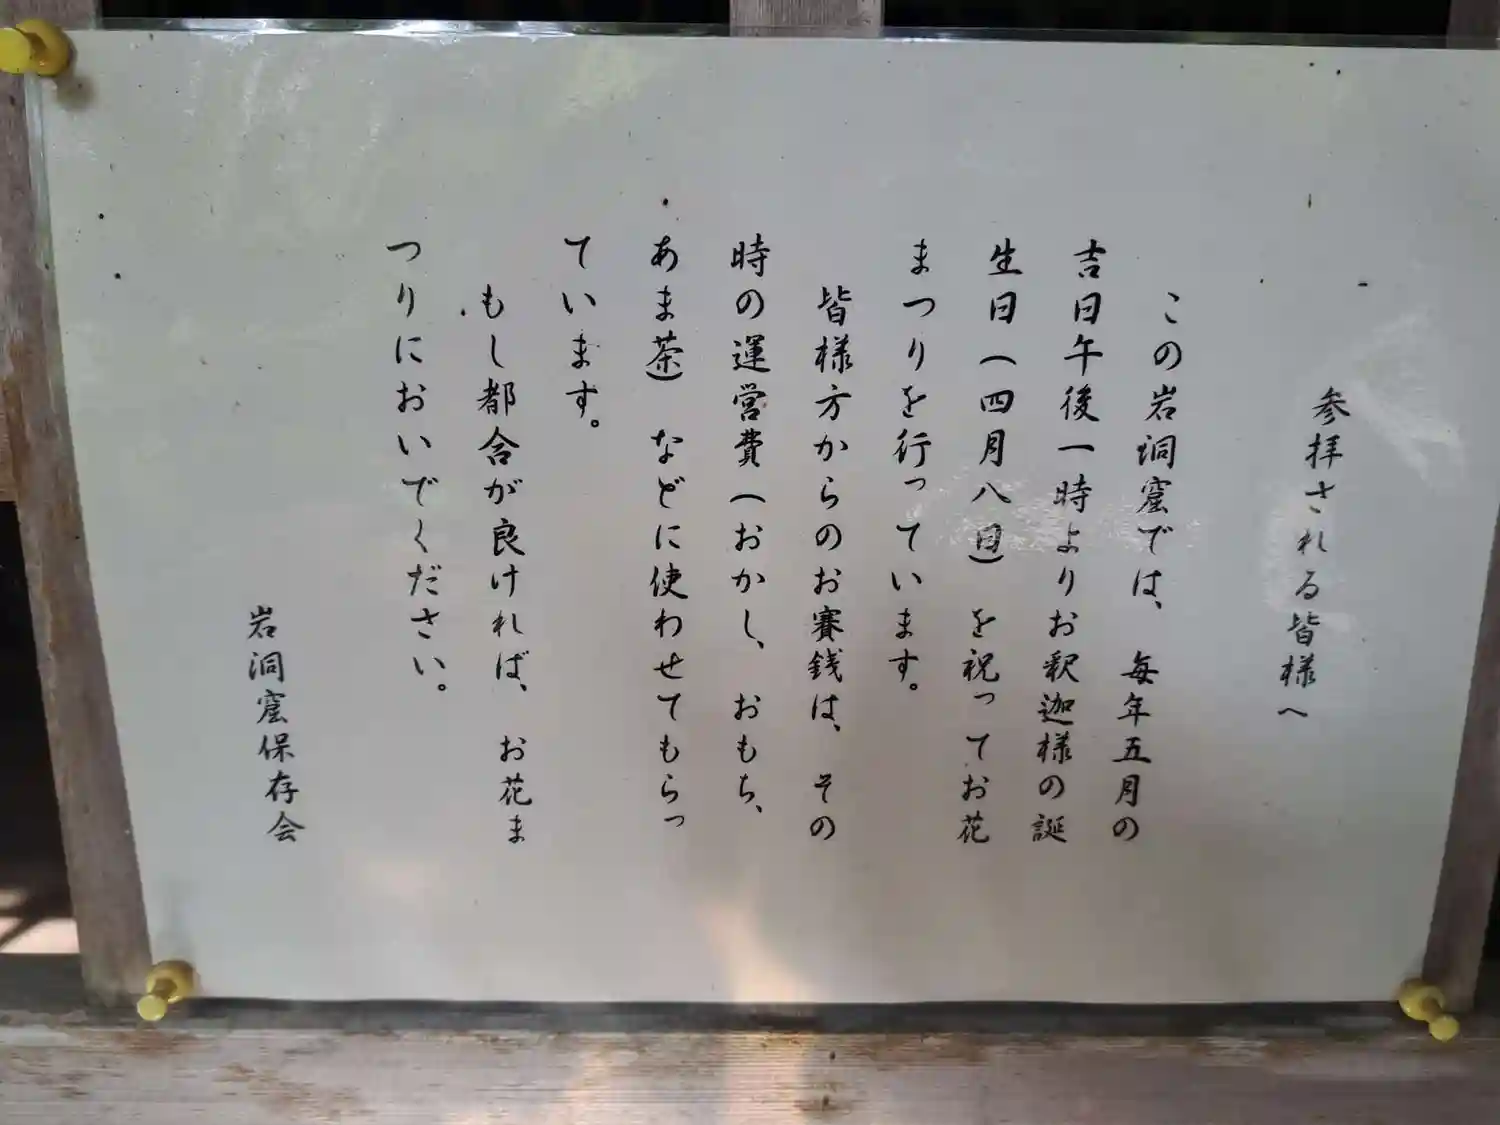 参拝される皆様へ
この岩洞窟では、毎年五月の
吉日午後一時よりお釈迦様の誕
生日(四月八日)を祝ってお花
まつりを行っています。
皆様方からのお賽銭は、その
時の運営費(おかし、おもち、
あま茶)などに使わせてもらっ
ています。
もし都合が良ければ、お花ま
つりにおいでください。
岩洞窟保存会